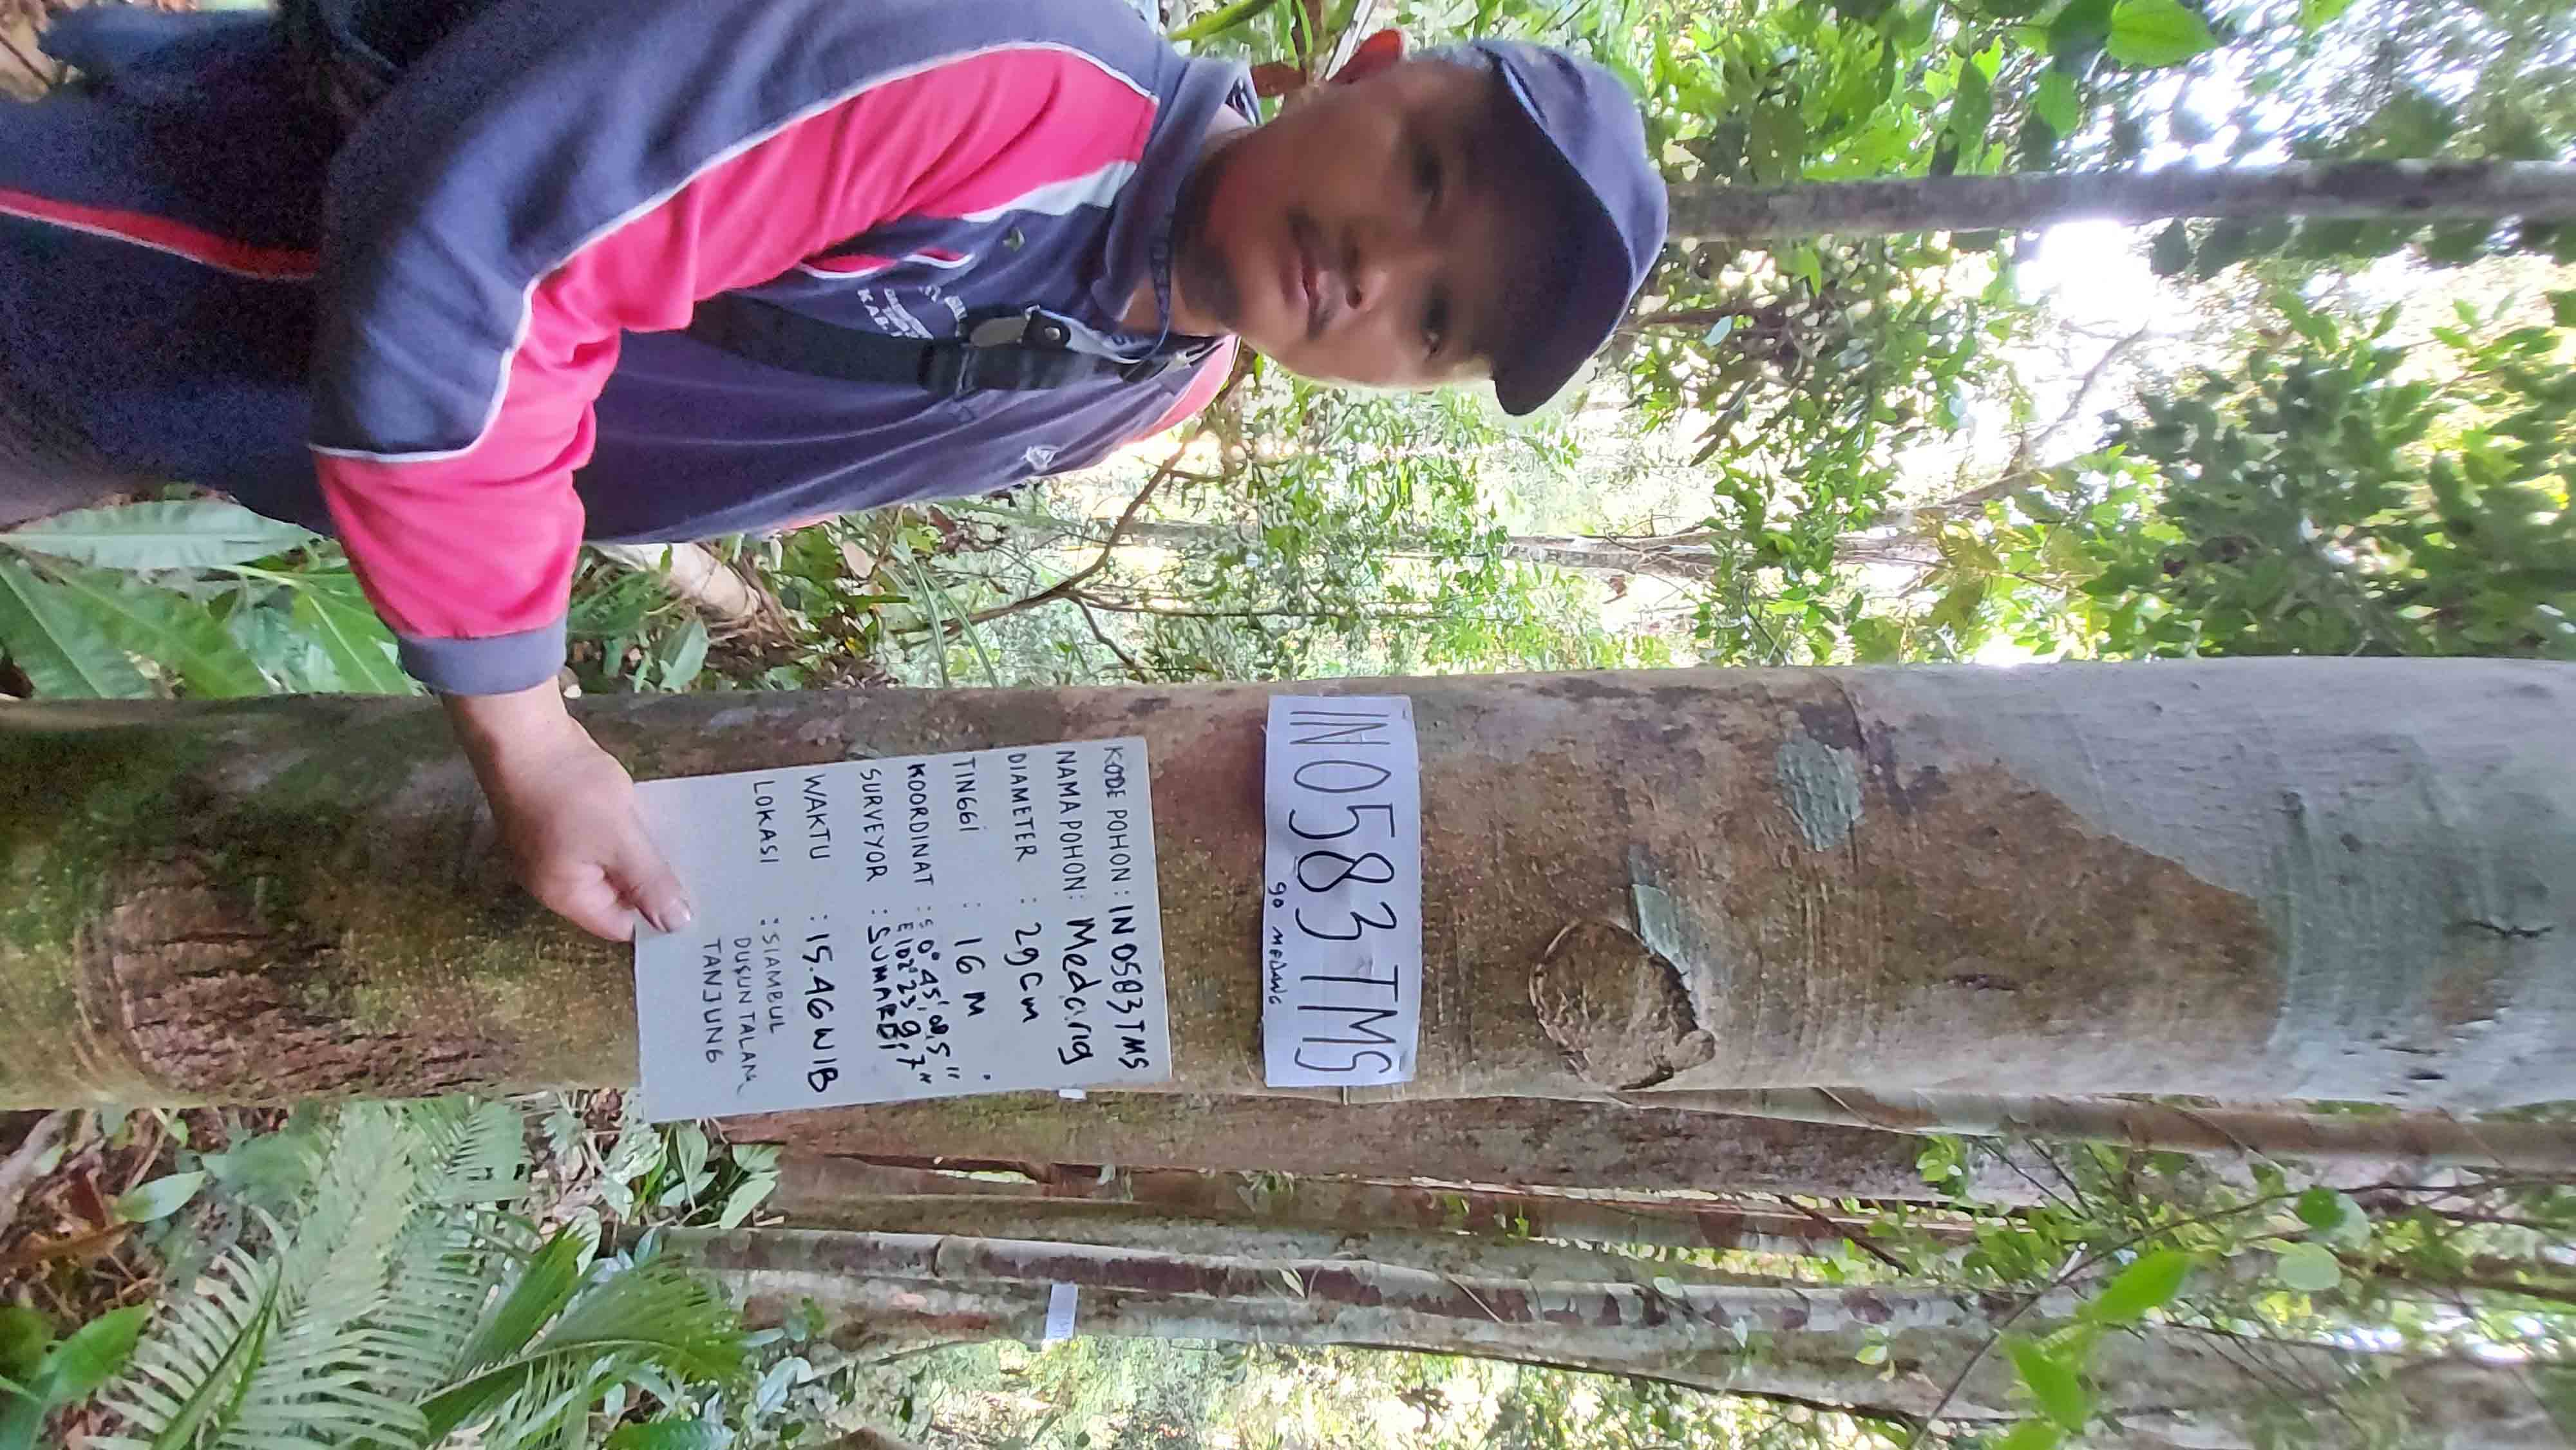 IN0583TMS
90 MEDANG
KODE POHON : IN 0583 TMS
NAMA POHON : Medang
DIAMETER : 29 Cm
TINGGI : 16 M
KOORDINAT : S 0° 45' 00,5"
E 102° 23 9,7"
SURVEYOR : SUMARDI
WAKTU : 15.46 WIB
LOKASI : SIAMBUL
DUSUN TALANG
TANJUNG
KAB.